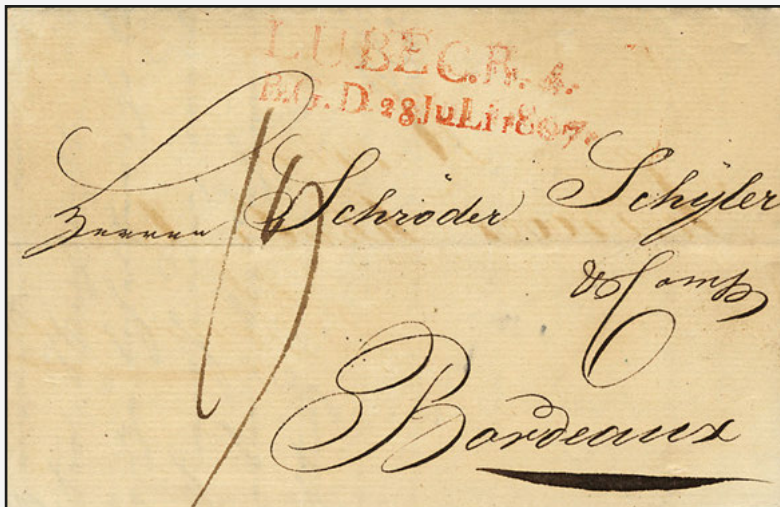 LUBEC.R.4.
B.G.D. 28 JuLi 1807.
Herren Schröder Schÿler
& Comp
Bordeaux